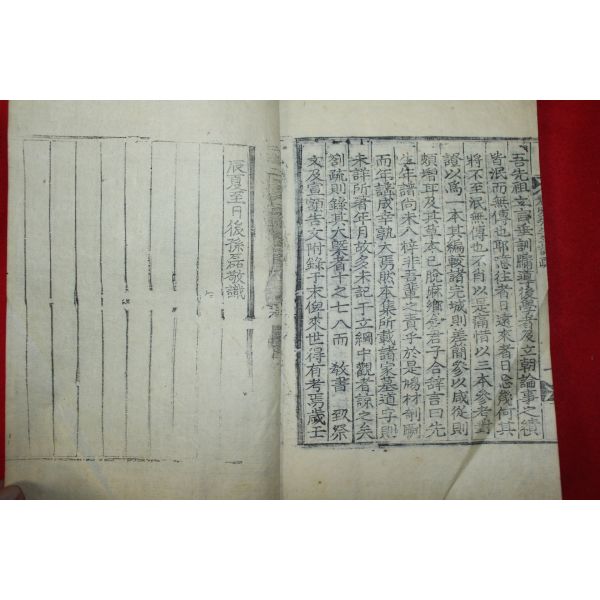 吾先祖立言垂訓闢道後學者及立朝論事之績
皆泯而無傳也耶恐往者日遠來者日忘幾何其
將不至泯無傳也不自以是痛惜以三本參考
證以爲一本其編較諸完城則差簡參以咸從則
頗增耳及其草本已脫 鄕 君子合辭言曰先
生年譜尚未入梓非吾輩之責乎於是鳩材剞劂
而年譜咸幸孰大焉然本集所載諸家墓道字則
未詳所著年月故多未記于立綱中觀者諒之矣
劉疏則錄其大槩者十之七八而 敎書 致祭
文及宣額告文附錄于末俾來世得有考焉歲壬
辰夏至日後孫磊敬識